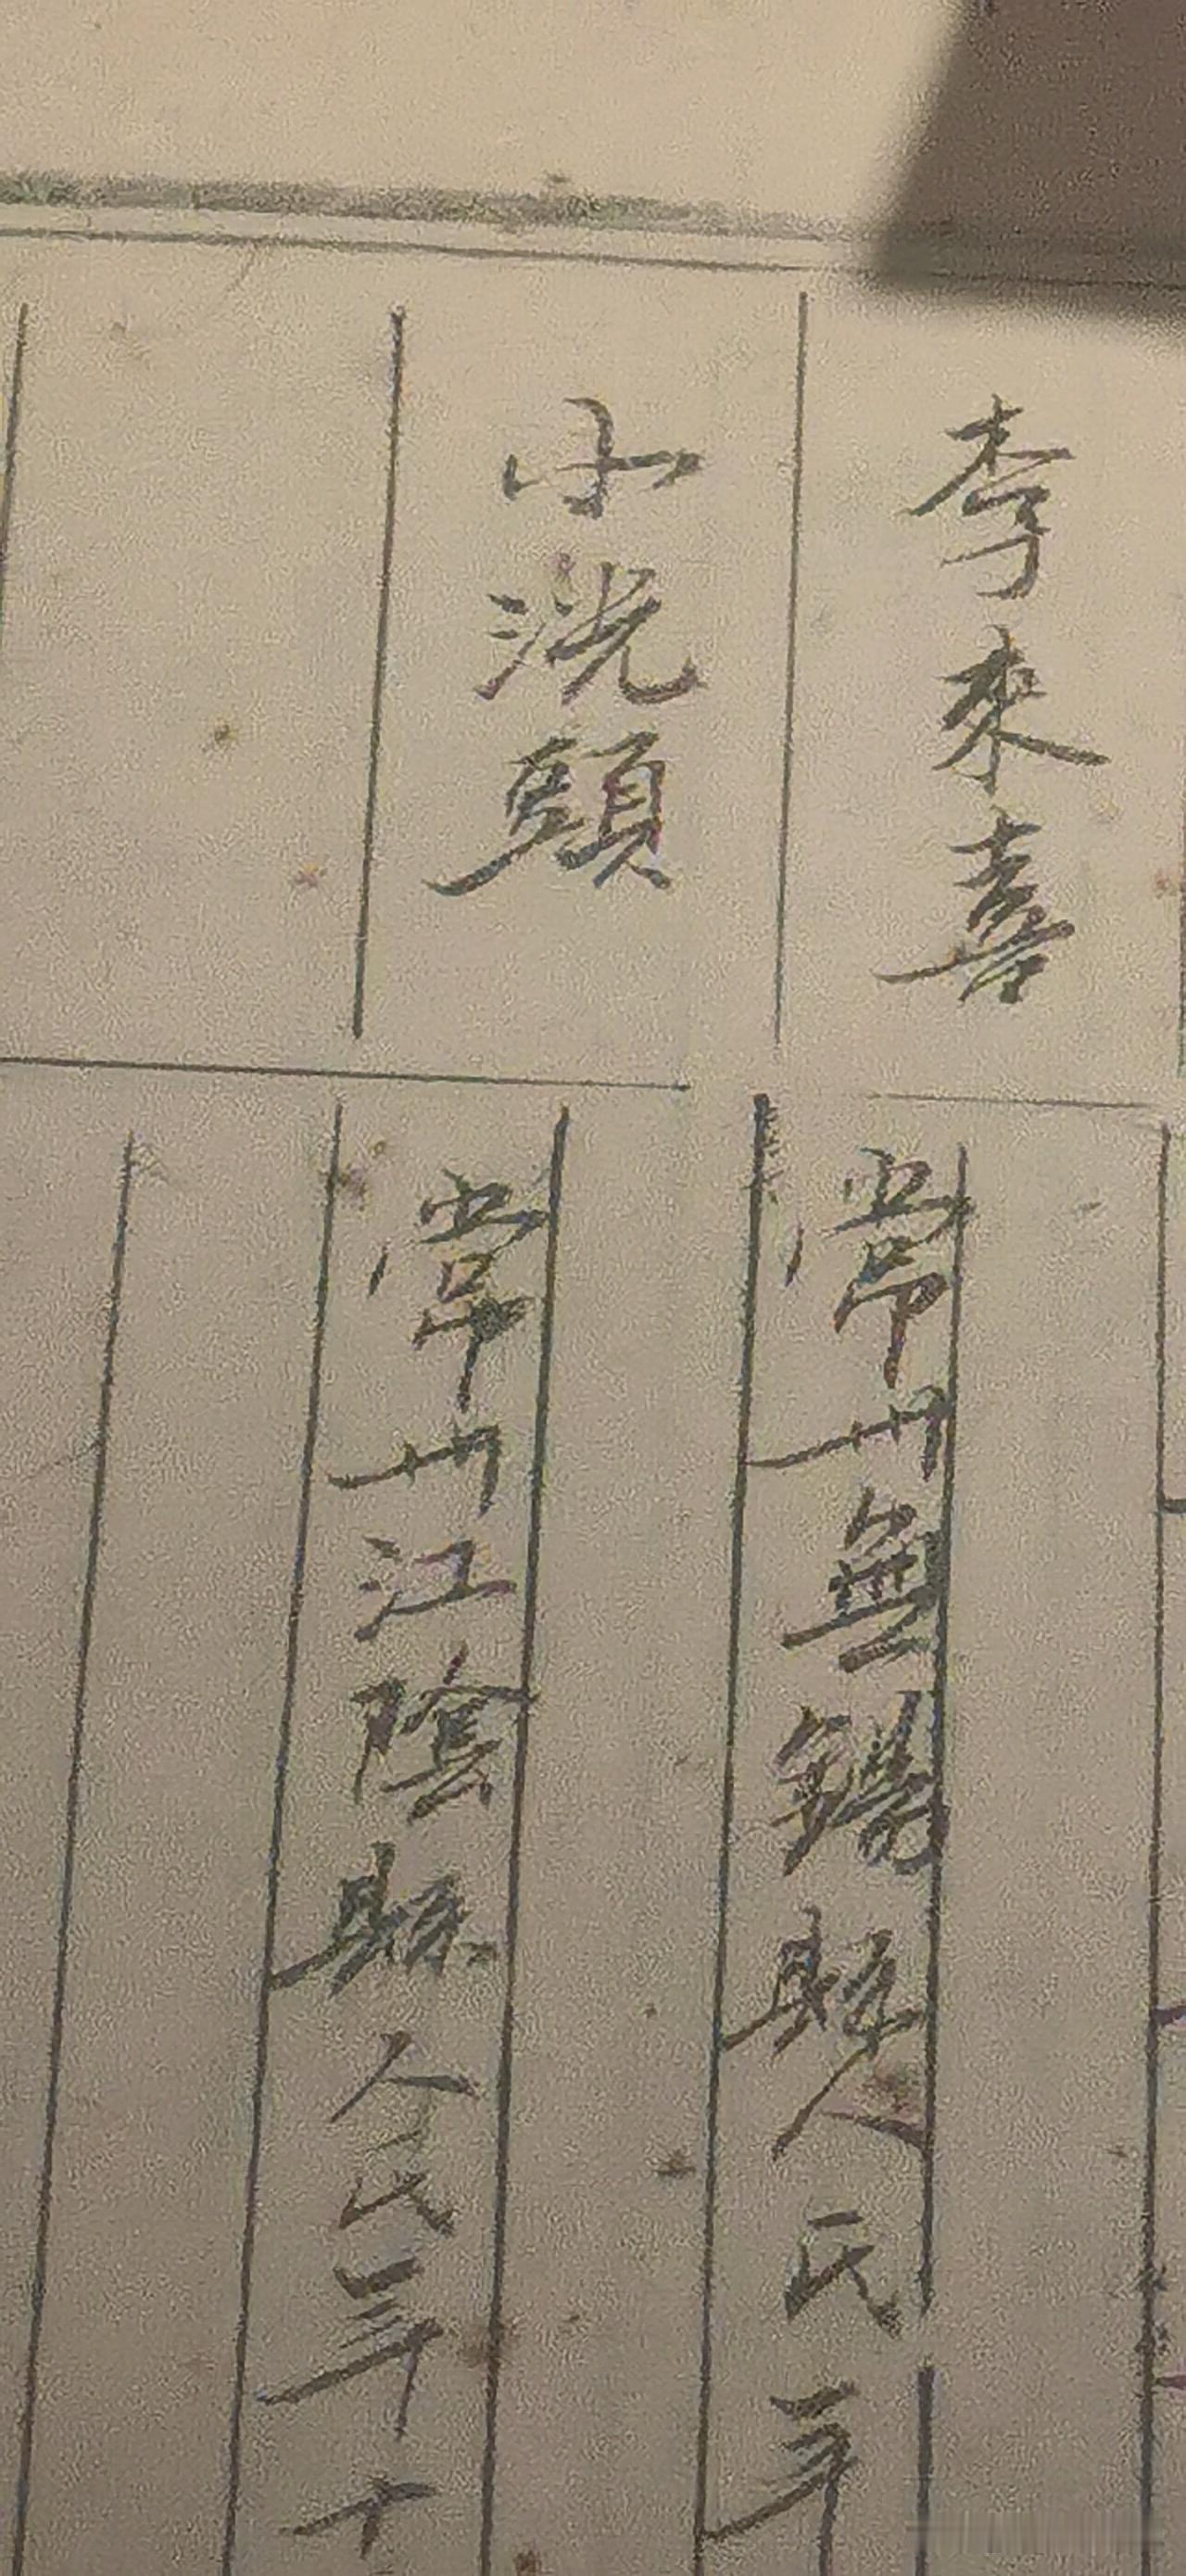 李來喜
常州無錫縣人氏年
小洸頭
常州江陰縣人氏年十